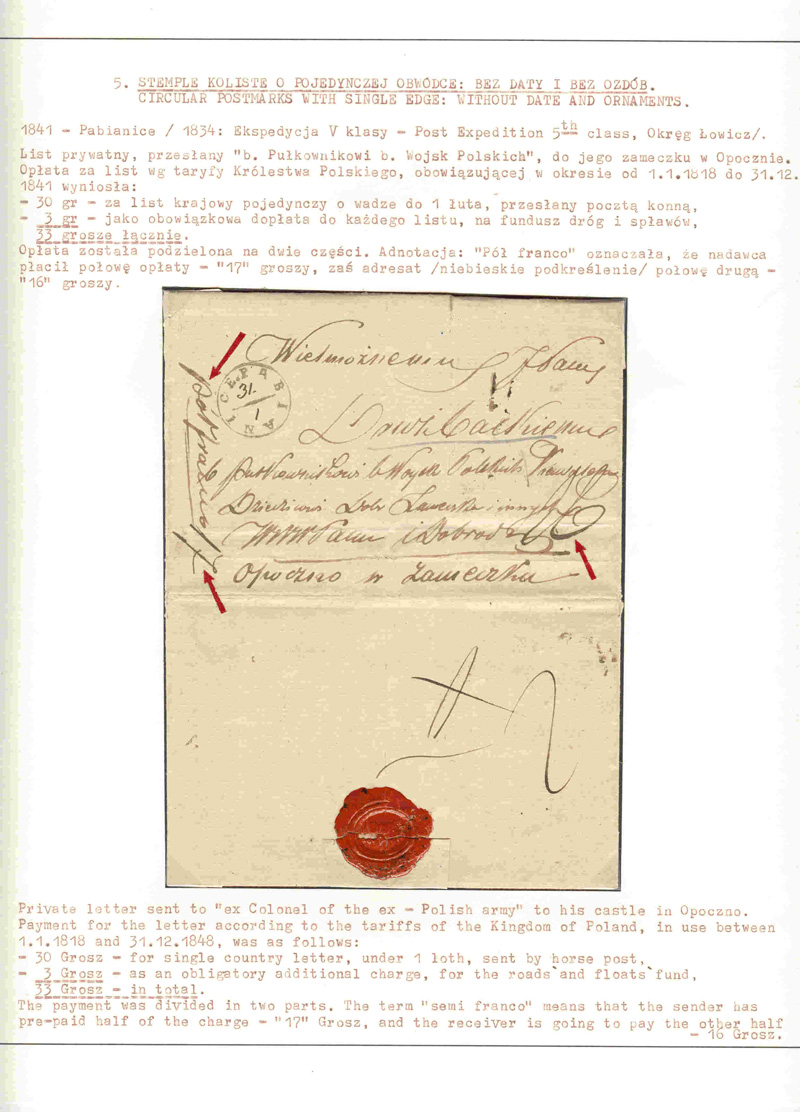 5. STEMPLE KOLISTE O POJEDYNCZEJ OBWÓDCE: BEZ DATY I BEZ OZDÓB.
CIRCULAR POSTMARKS WITH SINGLE EDGE: WITHOUT DATE AND ORNAMENTS.
1841 - Pabianice / 1834: Ekspedycja V klasy - Post Expedition 5th class, Okręg Łowicz/.
List prywatny, przesłany "b. Pułkownikowi b. Wojsk Polskich", do jego zameczku w Opocznie.
Opłata za list wg taryfy Królestwa Polskiego, obowiązującej w okresie od 1.1.1818 do 31.12.
1841 wyniosła:
- 30 gr - za list krajowy pojedynczy o wadze do 1 łuta, przesłany pocztą konną,
- 3 gr - jako obowiązkowa dopłata do każdego listu, na fundusz dróg i spławów,
33 grosze łącznie.
Opłata została podzielona na dwie części. Adnotacja: "Pół franco" oznaczała, że nadawca
płacił połowę opłaty - "17" groszy, zaś adresat /niebieskie podkreślenie/ połowę drugą -
"16" groszy.
Wielmożnemu J Panu
PABIANICE
31.
1
Pół franco 17
Pułkownikowi b Woysk Polskich
Dziedzicowi Dobr
WWPanu i Dobrod
Opoczno w Zameczku
Private letter sent to "ex Colonel of the ex - Polish army" to his castle in Opoczno.
Payment for the letter according to the tariffs of the Kingdom of Poland, in use between
1.1.1818 and 31.12.1848, was as follows:
- 30 Grosz - for single country letter, under 1 loth, sent by horse post,
- 3 Grosz - as an obligatory additional charge, for the roads`and floats`fund,
33 Grosz - in total.
The payment was divided in two parts. The term "semi franco" means that the sender has
pre-paid half of the charge - "17" Grosz, and the receiver is going to pay the other half
- 16 Grosz.